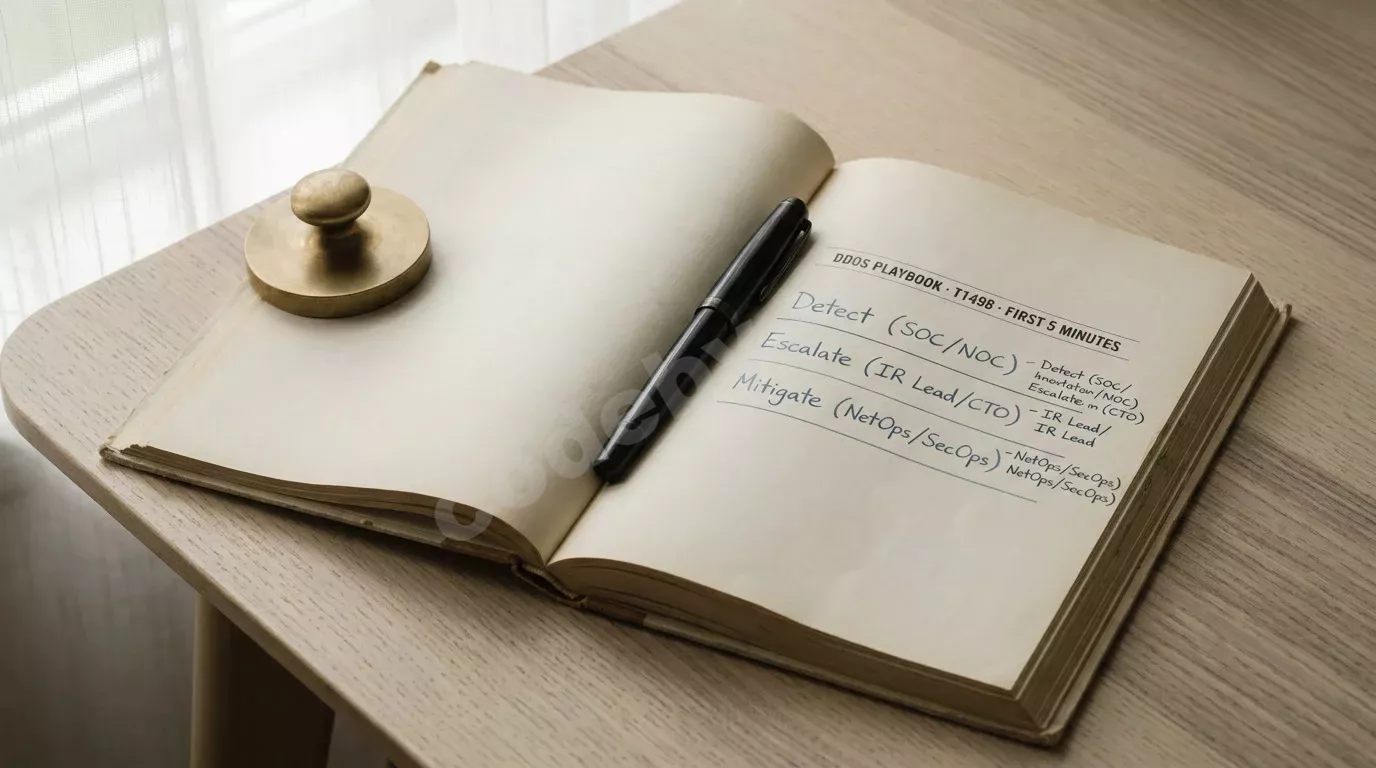 DDOS PLAYBOOK · T1498 · FIRST 5 MINUTES
Detect (SOC/NOC)
Escalate (IR Lead/CTO)
Mitigate (NetOps/SecOps)
- Detect (SOC/
/NOC)
Escalate (CTO)
- IR Lead/
IR Lead
-NetOps/SecOps)
NetOps/SecOps)
codeby